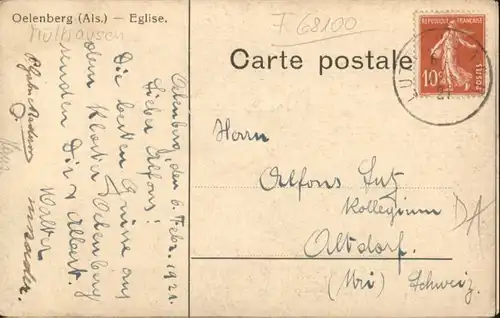 Oelenberg (Als.) — Eglise.
Mülhausen
F 68100
Carte postale
REPUBLIQUE FRANÇAISE
10c
POSTES
LUT
21
Oelenberg, den 6. Febr. 1921.
Lieber Alfons!
Die besten Grüsse aus
dem Kloster Oelenberg
senden Dir & Albert.
Walter
Herrn
Alfons Lutz
Kollegium
Altdorf.
(Uri) Schweiz.